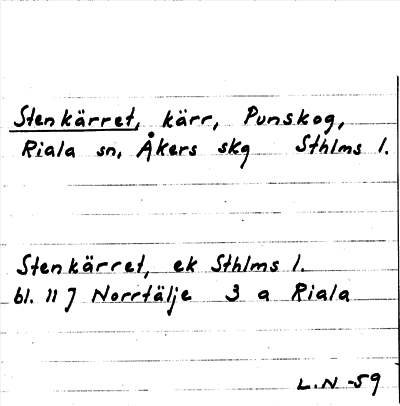 Stenkärret, kärr, Punskog,
Riala sn, Åkers skg Sthlms l.
Stenkärret, ek Sthlms l.
bl. 11 J Norrtälje 3 a Riala
L.N -59